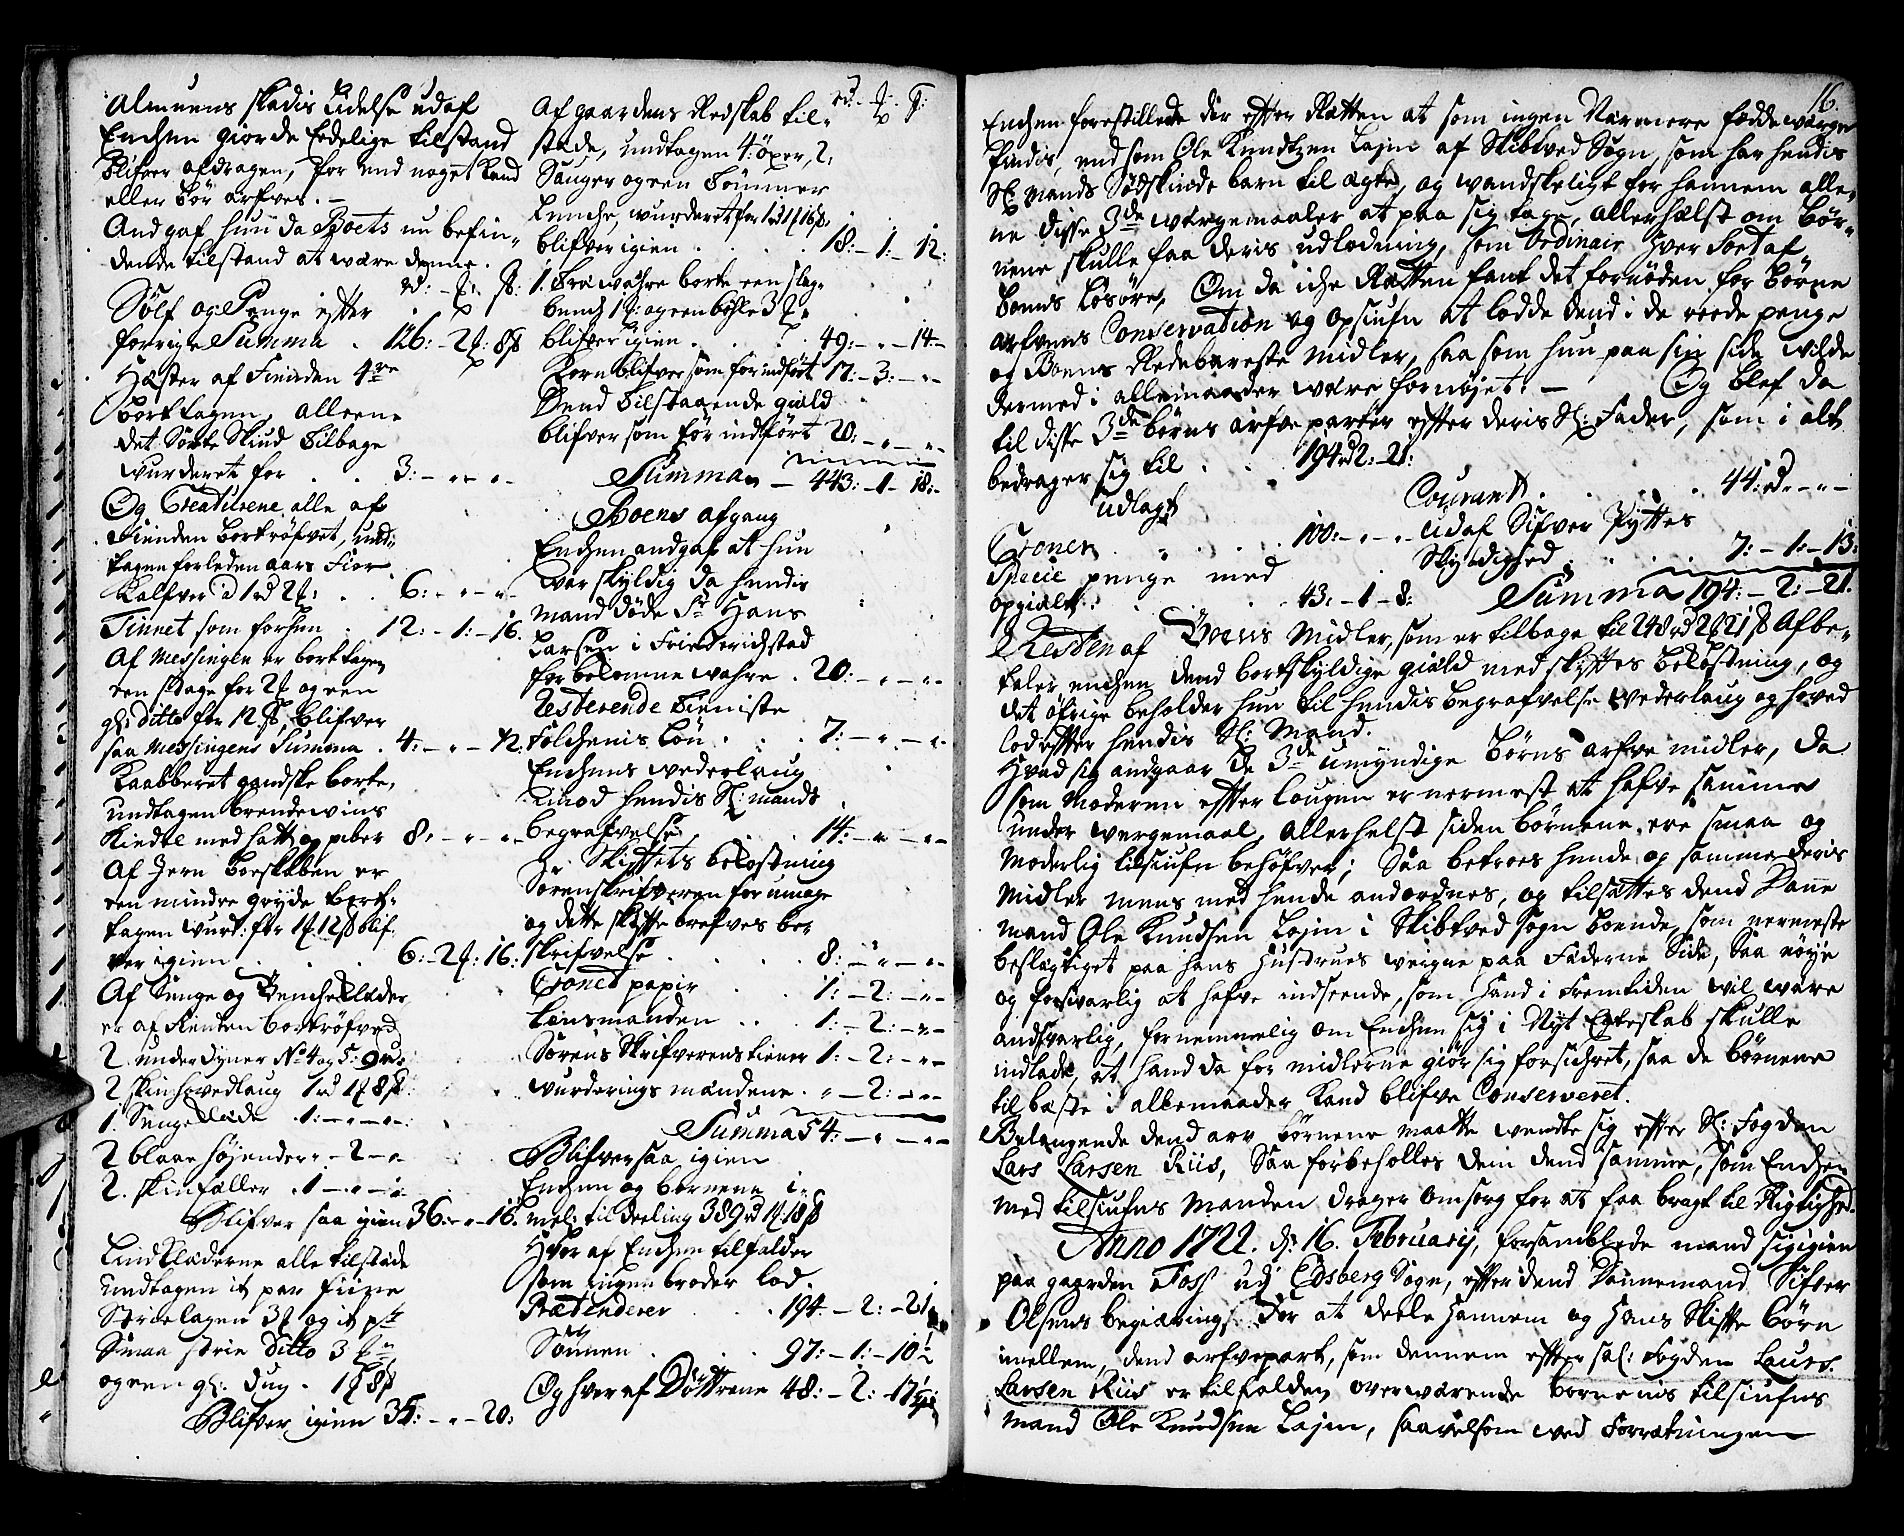 Almuens skadis Lidelse udaf
Enchen giorde Eedelige tilstand
blifver afdragen, før end noget kand
eller bør arfves. –
Andgaf hun da Boets nu befin-
dende tilstand at være denne.
rd: – ₰: ß:
Sølf og Penge efter
forrige Summa . 126: – 2 ₰: 8 ß
Hæster af Fienden 4re
borttagen, alleene
det Sorte Skiud tilbage
wurderet for . . 3: – „ – „ –
Og Creaturene alle af
Fienden bortrøfvet, und-
tagen forleden aars Fior
Kalfver à 1 rd 2 ₰: . . 6: – „ – „ –
Tinnet som forhen . 12: – 1: – 16.
Af Messingen er borttagen
een stage for 2 ₰ og een
gl: ditto for 12 ß, blifver
saa Messingens Summa . 4: – „ – 12.
Kaabberet gandske borte,
undtagen brendewins
Kiedel med hatt og piber 8: – „ – „ –
Af Jern Boeskaben er
een mindre gryde bort-
tagen wurd: for 1 ₰ 12 ß blif-
ver igien . . . 6: – 2 ₰: 16:
Af Senge og Benche Klæder
er af Fienden bortrøfved
2. underdyner No 4 og 5: 9 rd.
2 skinhovedlaug 1 rd 1 ₰ 8 ß:
1. Senge Klæde . 1: – „ – „ –
2 blaae højender „ – 2 – „
2. skinfæller . 1 – „ – „
Blifver saa igien 36: – „ – 16.
Lindklæderne alle tilstæde
undtagen it par fiine
Strielagen 3 ₰ og it pr
Smaa strie ditto 3 ₰
og een gl: dug . 1 ₰ 8 ß
Blifver igien 35: – „ – 20:
rd: – ₰ – ß:
Af gaardens Redskab til-
stæde, undtagen 4: øxer, 2:
Sauger og een Tømmer
Lenche, wurderet for 1 rd 1 ₰ 16 ß,
blifver igien . . . . 18: – 1: – 12:
1. Træ wahre borte een slag-
bench 1 ₰: og een bøsse 3 ₰
blifver igien . . . . 49: – „ – 14 –
Korn blifver som før indført 17: – 3: – „ –
Dend tilstaaende giæld
blifver som før indført 20: – „ – „ –
Summa – 443: – 1 – 18: –
Boens afgang
Enchen andgaf at hun
war skyldig da hendis
mand døde Sr Hans
Larsen i Friderichstad
for bekomne wahre . 20: – „ – „ –
Resterende tieniste
Folchenis Løn . . . 7: – „ – „ –
Enchens wederlaug
imod hendis Sl: mands
begrafvelse . . . 14: – „ – „ –
Skiftets bekostning
Sorenskrifveren for umage
og dette skifte brefves be-
skrifvelse . . . . 8: – „ – „ –
Cronet papir . . . 1: – 2: – „ –
Lensmanden . . . 1: – 2: – „ –
Sorens Skrifverens tiener 1: – 2: – „ –
Wurderings mændene . „ – 2: – „ –
Summa 54: – „ – „ –
Blifver saa igien
Enchen og børnene i-
mel: til deeling 389 rd 1 ₰ 18 ß
Hvor af Enchen tilfalder
som ingen broder lod.
Prætenderer . . . 194. – 2: – 21
Sønnen . . . 97: – 1: – 10½
Og hver af Døttrene 48: – 2: – 17¼
16.
Enchen forestillede der efter Retten at som ingen Nærmere fædde wærge
findis, end som Ole Knudtzen Lajm af Skibtved Sogn, som har hendis
Sl: mands Sødskinde barn til ægte, og wandskeligt for hannem alle-
ne disse 3de wærgemaaler at paa sig tage, allerhælst om Bør-
nene skulle faa deris udlodning, som Ordinair hver sort af
boens Løsøre, Om da iche Retten fant det fornøden for børne
arfvens Conservation og Opsiufn at lodde dend i de reede penge
og Boens Redebareste midler, saa som hun paa sin side wilde
dermed i allemaader wære fornøjet. – Og blef da
til disse 3de børns arfve parter efter deris Sl: Fader, som i alt
bedrager sig til . . 194 rd 2: – 21:
udlagt
Croner . „ . . . 100: – „ – „ –
Specie penge med
opgielt . . . . 43: – 1 – 8:
Courant . . . . . 44: rd – „ –
udaf Sifver Pyttes
Skyldighed . . . 7: – 1: – 13:
Summa 194: – 2: – 21.
Resten af Boens midler, som er tilbage til 248 rd 2 ₰ 21 ß Afbe-
taler enchen dend bortskyldige giæld med skiftes bekostning, og
det øfrige beholder hun til hendis begrafvelse wederlaug og hoved
lod efter hendis Sl: Mand.
Hvad sig andgaar de 3de umyndige børns arfve midler, da
som Moderen efter Lougen er nermest at hafve samme
under wergemaal, allerhelst siden børnene ere smaa og
Moderlig tilsiufn behøfver; Saa betroes hende og samme deris
Midler mens med hende andordnes, og tilsættes dend Danne
mand Ole Knudsen Lajm i Skibtved Sogn boende, som nermeste
beslægtiget paa hans Hustrues weigne paa Fæderne Side, Saa nøye
og forsvarlig at hafve indseende, som Hand i Fremtiden wil være
andsvarlig, fornemmelig om Enchen sig i Nyt Egteskab skulle
indlade, at hand da for midlerne giør sig forsichret, saa de børnene
til beste i allemaader kand blifve Conserveret.
Belangende dend arv børnene maatte wendte sig efter Sl: Fogden
Lars Larsen Riis, Saa forbeholles dem dend samme, som Enchen
med tilsiufns manden drager omsorg for at faa bragt til Rigtighed.
Anno 1722. d: 16. February, forsamblede mand sig igien
paa gaarden Foss udj Edsberg Sogn, efter dend Dannemand Sifver
Olsens begiæring, for at deele hannem og hans Skifte børn
imellem, dend arfvepart, som dennem efter sal: Fogden Laurs.
Larsen Riis er tilfalden, overwærende børnenis tilsiufns
mand Ole Knudsen Lajm, saavelsom ved Forretningen